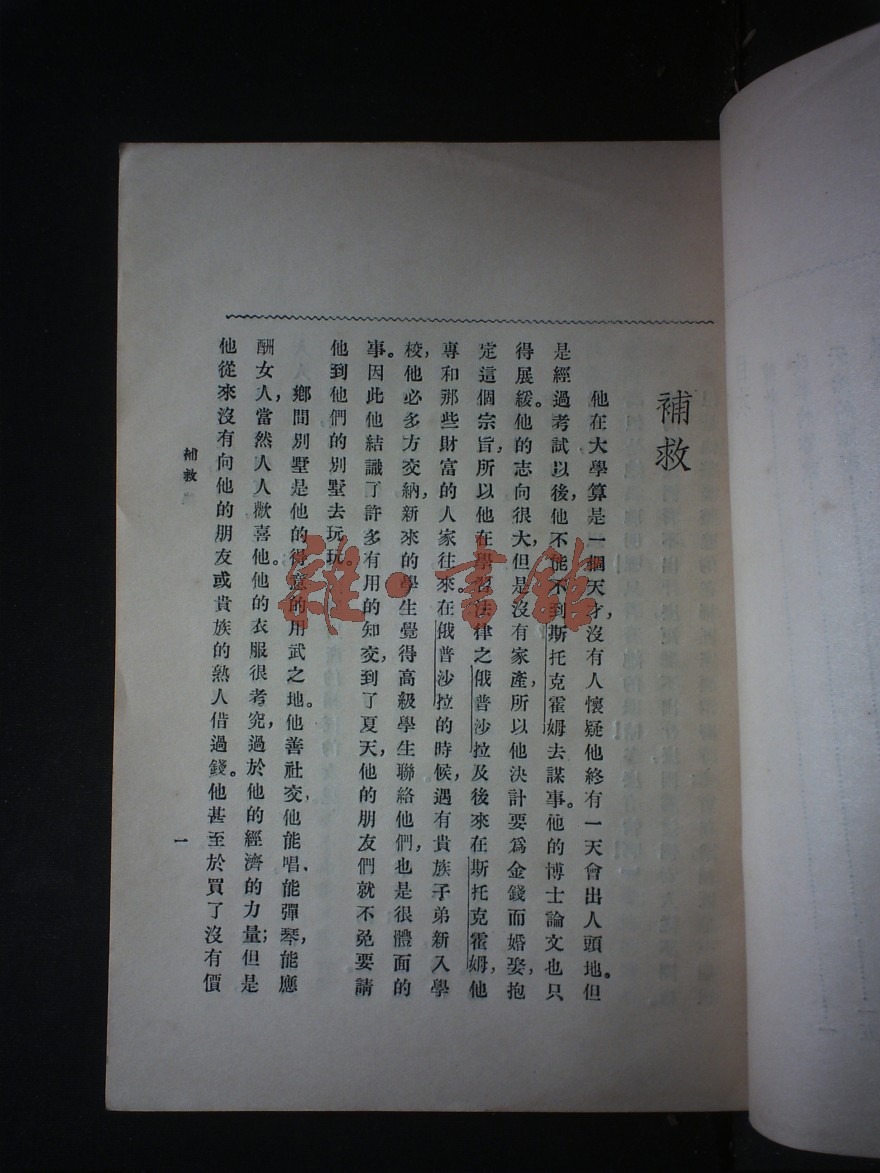 補救
他在大學算是一個天才，沒有人懷疑他終有一天會出人頭地。但
是經過考試以後，他不能不到斯托克霍姆去謀事。他的博士論文也只
得展緩。他的志向很大，但是沒有家產，所以他決計要爲金錢而婚娶，抱
定這個宗旨，所以他在學習法律之俄普沙拉及後來在斯托克霍姆，他
專和那些財富的人家往來。在俄普沙拉的時候，遇有貴族子弟新入學
校，他必多方交納，新來的學生覺得高級學生聯絡他們，也是很體面的
事。因此他結識了許多有用的知交，到了夏天，他的朋友們就不免要請
他到他們的別墅去玩玩。
鄉間別墅是他的得意的用武之地。他善社交，他能唱、能彈琴，能應
酬女人，當然人人歡喜他。他的衣服很考究，過於他的經濟的力量；但是
他從來沒有向他的朋友或貴族的熟人借過錢。他甚至於買了沒有價
補救
一
雜·書館